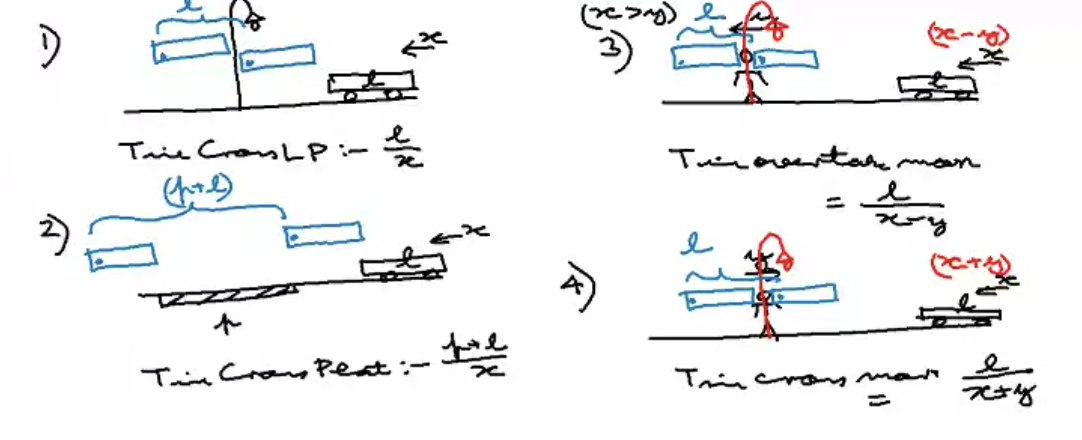 1)
l
x
l
Time Cross LP :- l/x
2)
(p+l)
x
l
p
Time Cross Plat :- p+l/x
(x>y)
3)
l
y
(x-y)
x
l
Time overtake man
= l/x-y
4)
l
y
(x+y)
x
l
Time cross man = l/x+y